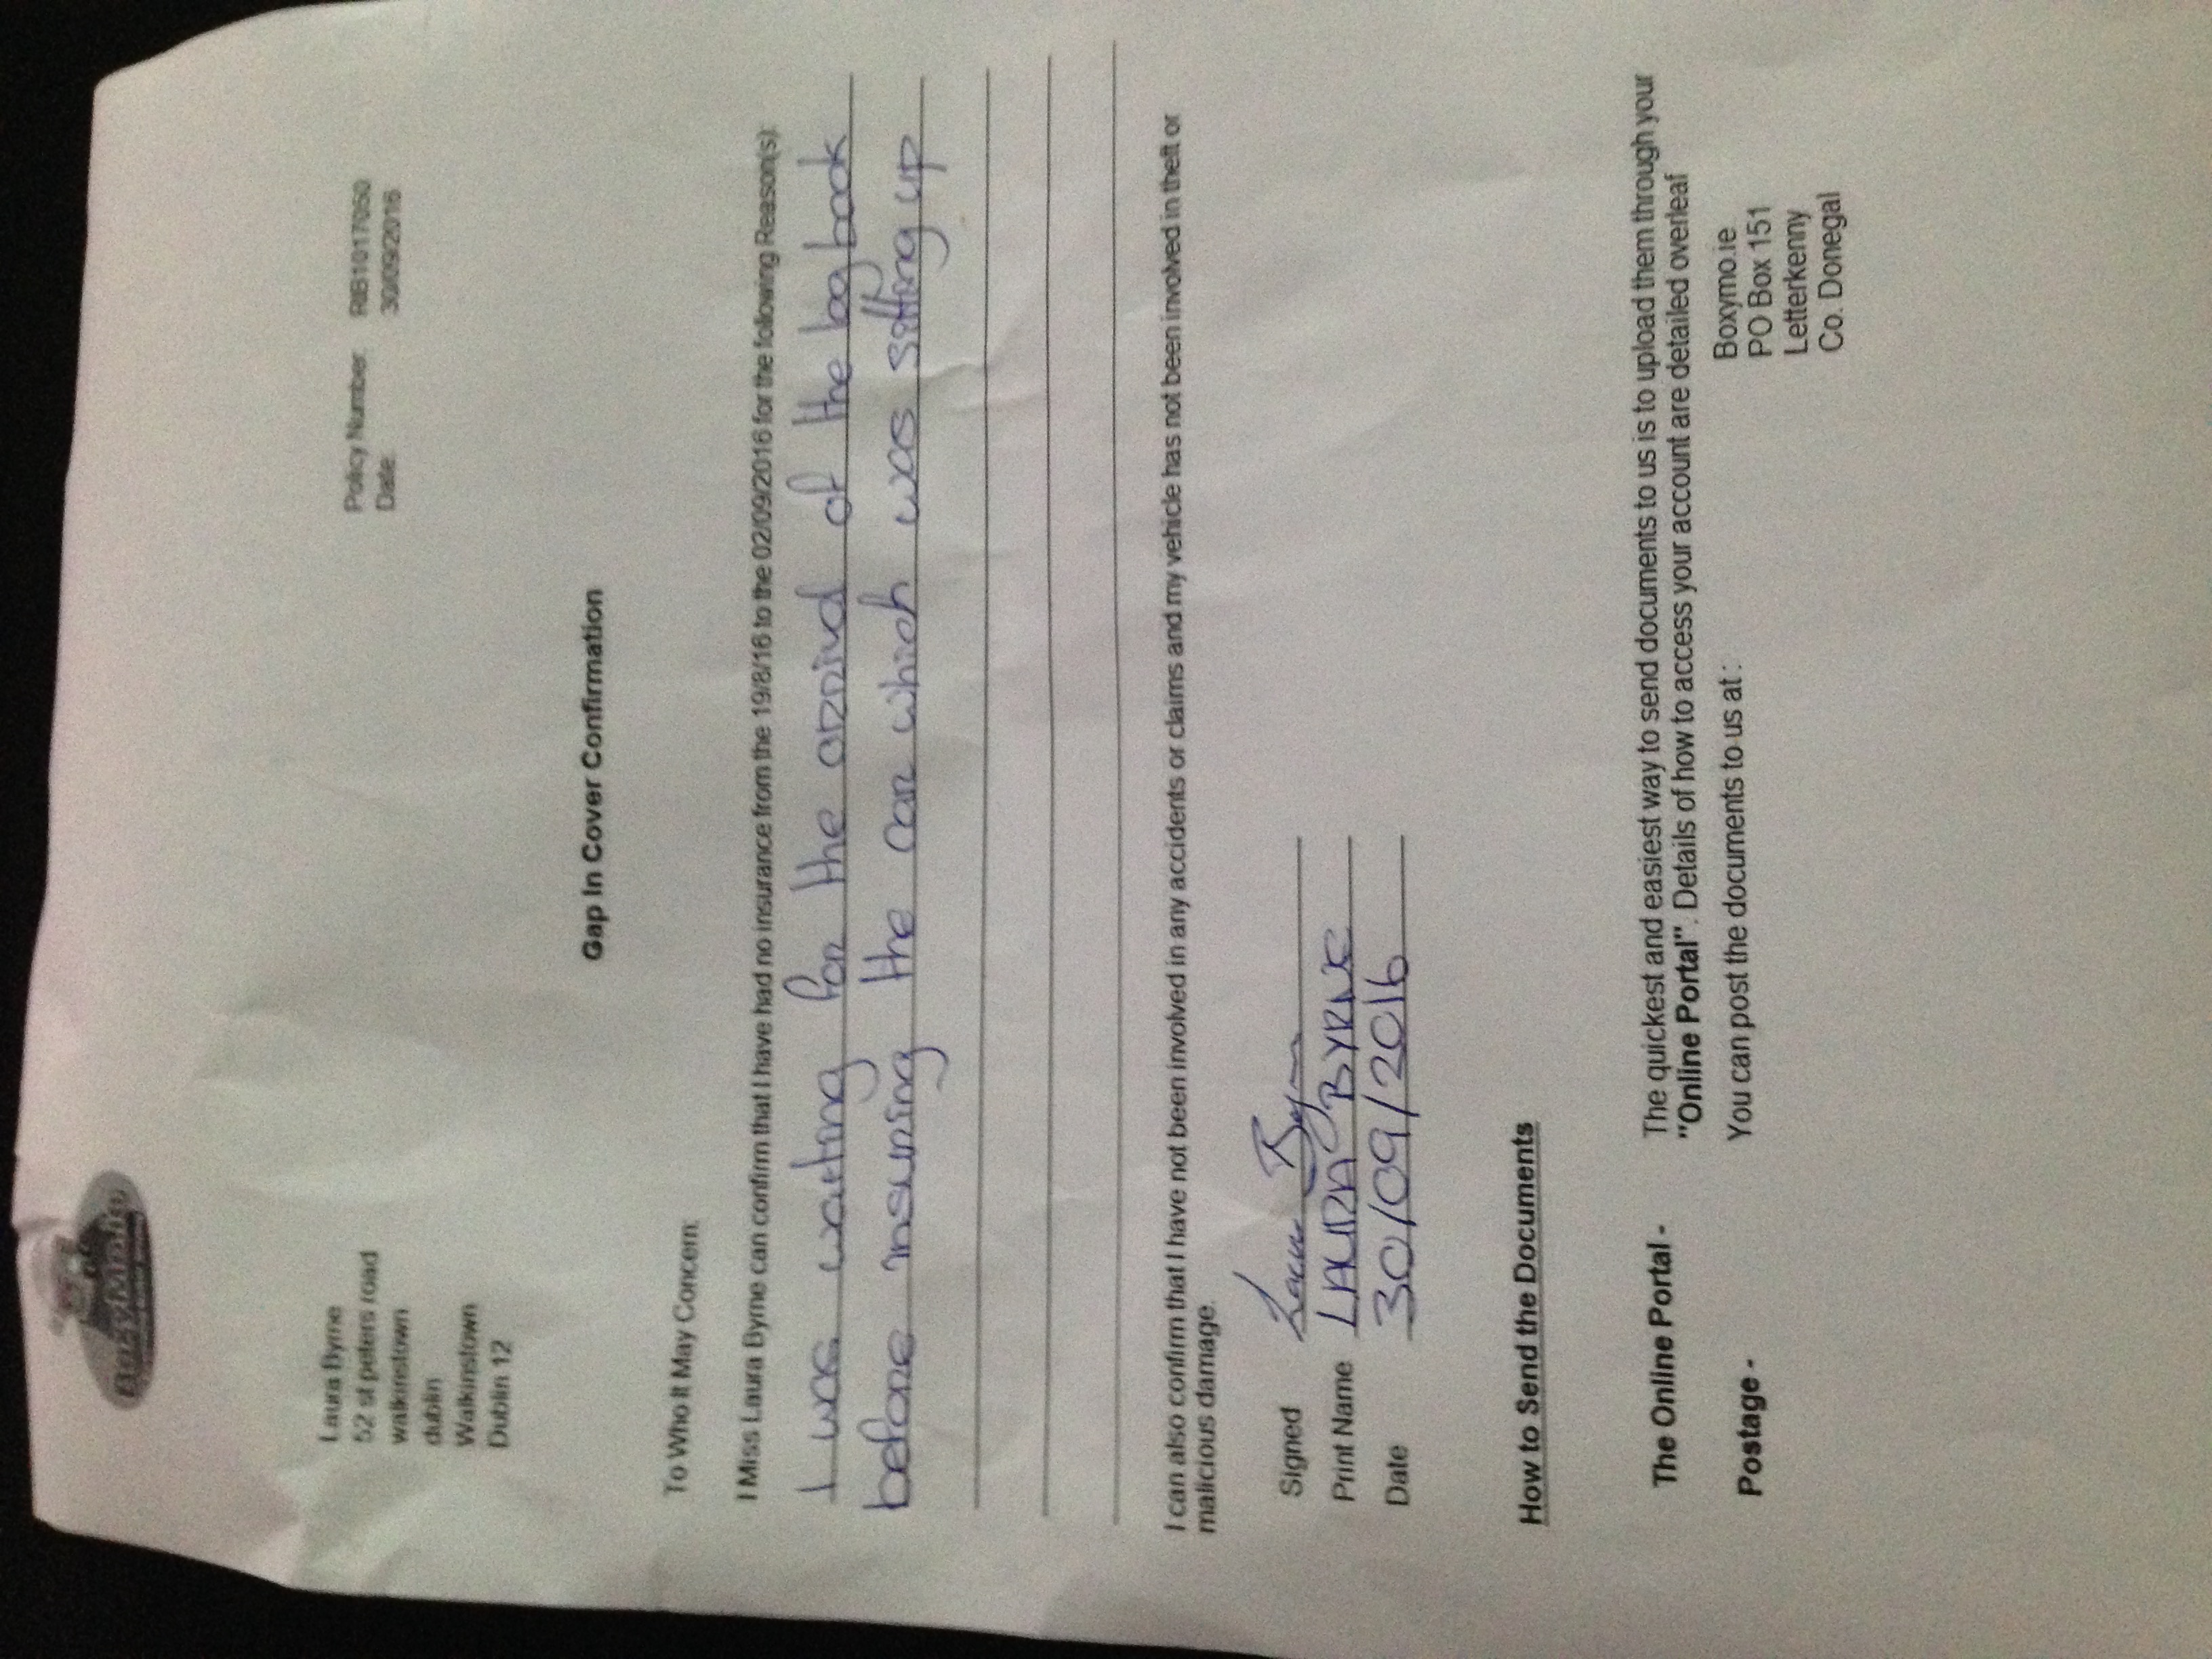 BoxyMo.ie
Laura Byrne
52 st peters road
walkinstown
dublin
Walkinstown
Dublin 12
Policy Number: RIB1017050
Date: 30/09/2016
Gap In Cover Confirmation
To Who It May Concern:
I Miss Laura Byrne can confirm that I have had no insurance from the 19/8/16 to the 02/09/2016 for the following Reason(s):
I was waiting for the arrival of the log book
before insuring the car which was sitting up
I can also confirm that I have not been involved in any accidents or claims and my vehicle has not been involved in theft or
malicious damage.
Signed Laura Byrne
Print Name LAURA BYRNE
Date 30/09/2016
How to Send the Documents
The Online Portal - The quickest and easiest way to send documents to us is to upload them through your
"Online Portal". Details of how to access your account are detailed overleaf
Postage - You can post the documents to us at :
Boxymo.ie
PO Box 151
Letterkenny
Co. Donegal